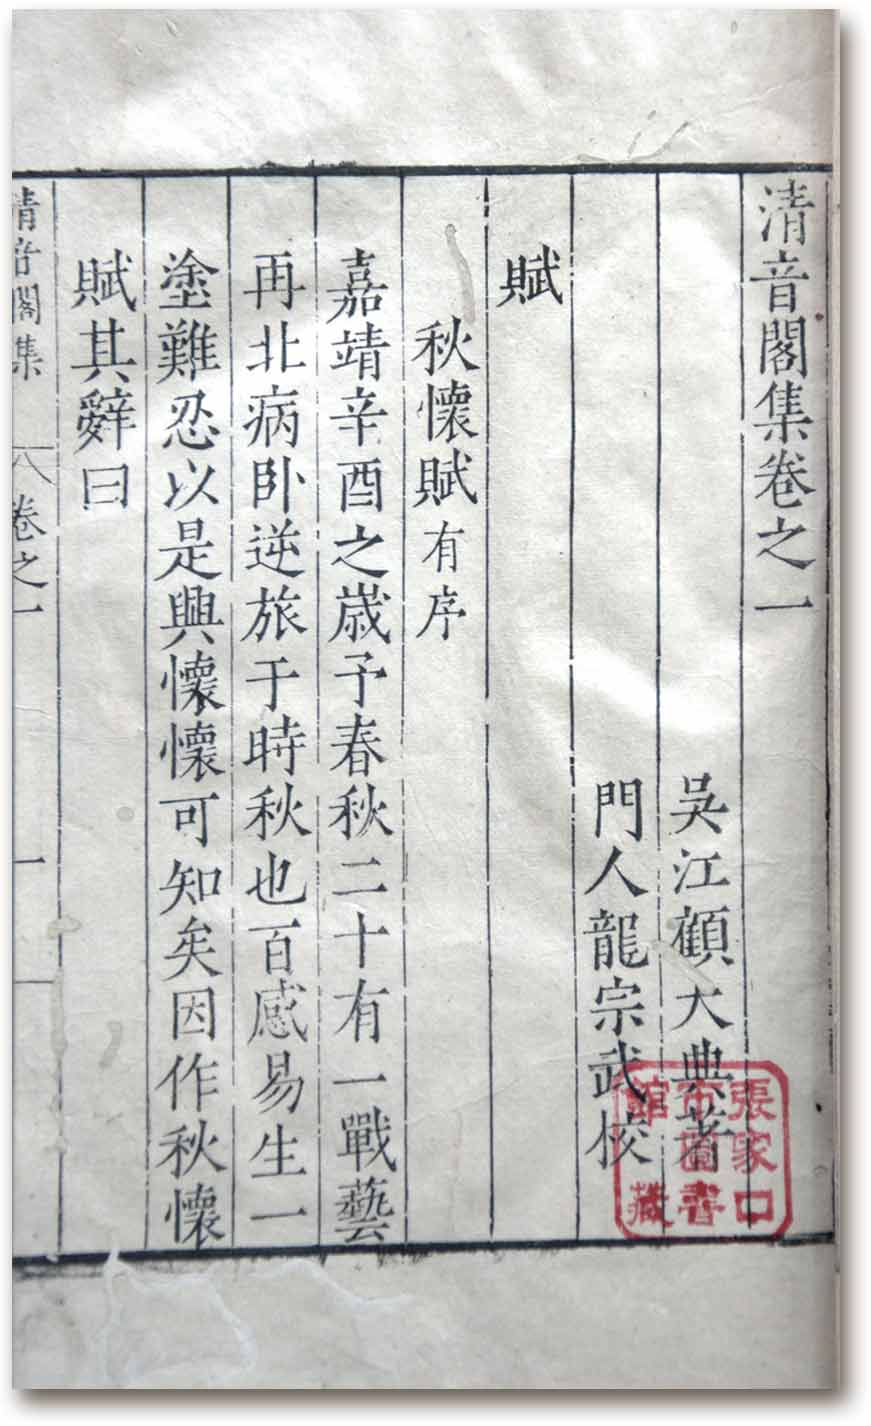 清音閣集卷之一
吳江顧大典著
門人龍宗武校
賦
秋懷賦有序
嘉靖辛酉之歲予春秋二十有一戰藝
再北病卧逆旅于時秋也百感易生一
塗難忍以是興懷懷可知矣因作秋懷
賦其辭曰
清音閣集 卷之一 一
張家口
市圖書
館藏